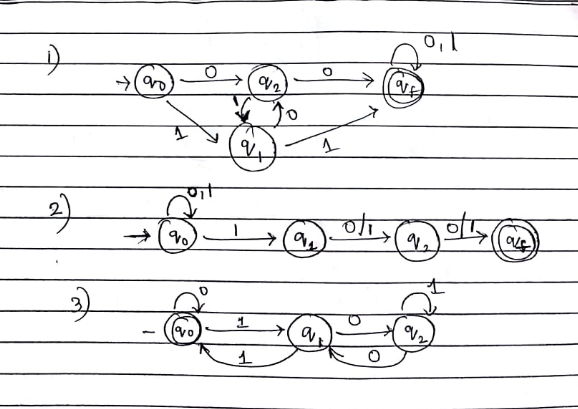 1)
0,1
→ q0 0 q2 0 qf
1 1 0
q1 1
2)
0,1
→ q0 1 q1 0/1 q2 0/1 qf
3)
0 1
q0 1 q1 0 q2
1 0